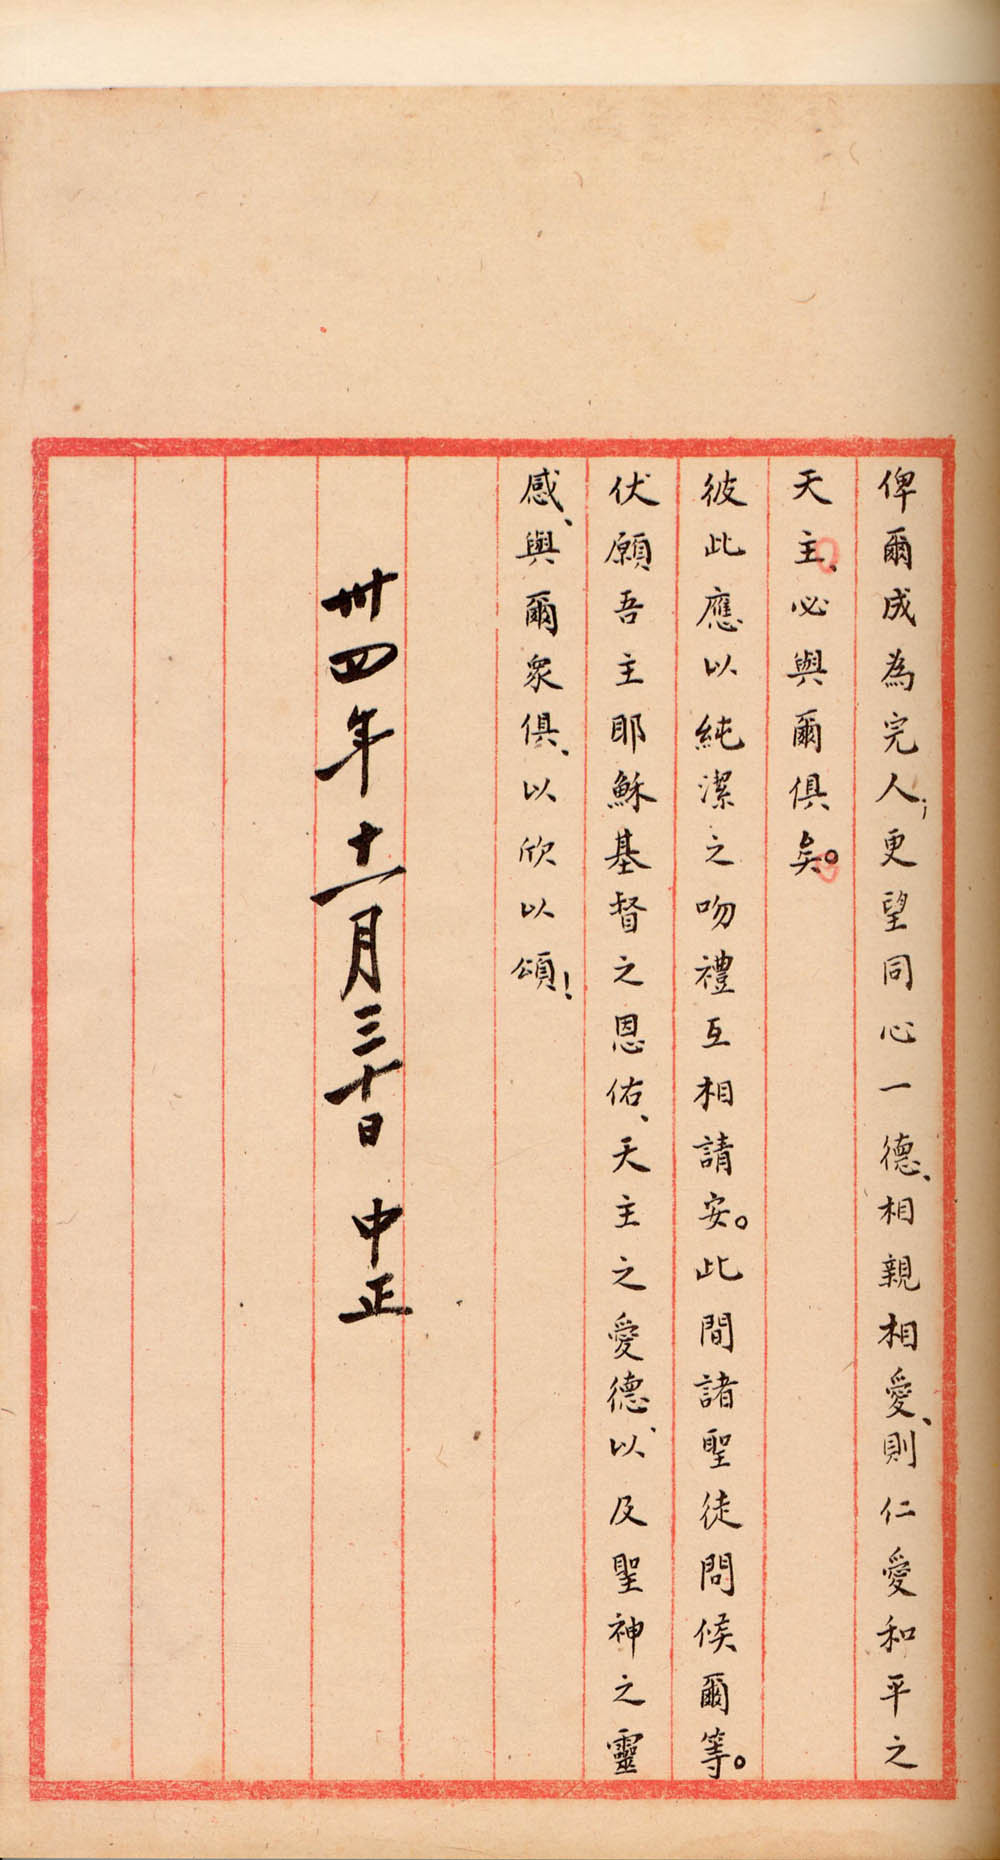 俾爾成為完人；更望同心一德、相親相愛、則仁愛和平之
天主、必與爾俱矣。
彼此應以純潔之吻禮互相請安。此間諸聖徒問候爾等。
伏願吾主耶穌基督之恩佑、天主之愛德、以及聖神之靈
感、與爾眾俱、以欣以頌！
卅四年十一月三十日 中正